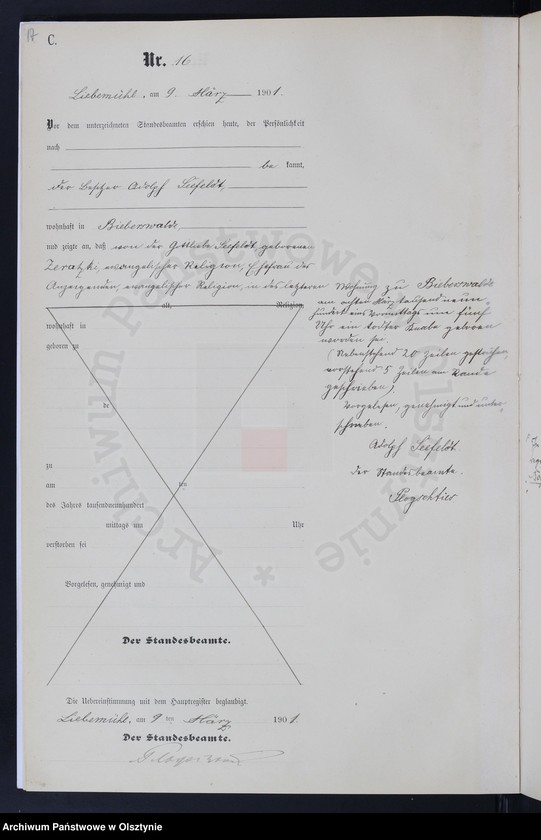 17
C.
Nr. 16
Liebemühl, am 9. März 1901.
Vor dem unterzeichneten Standesbeamten erschien heute, der Persönlichkeit
nach
be kannt,
der Besitzer Adolf Seefeldt,
wohnhaft in Bieberswalde,
und zeigte an, daß von der Gottliebe Seefeldt, geborenen
evangelischer Religion, Ehefrau des
Anzeigenden, evangelischer Religion, in des letzteren Wohnung zu Bieberswalde
am achten März tausend neun-
hundert eins Vormittags um fünf
Uhr ein todter Knabe geboren
worden sei.
(Nebenstehend 20 Zeilen gestrichen,
vorstehend 5 Zeilen am Rande
geschrieben)
Vorgelesen, genehmigt und unter-
schrieben.
Adolph Seefeldt.
Der Standesbeamte.
alt, Religion,
wohnhaft in
geboren zu
de
zu
am ten
des Jahres tausendneunhundert
mittags um Uhr
verstorben sei
Vorgelesen, genehmigt und
Der Standesbeamte.
Die Uebereinstimmung mit dem Hauptregister beglaubigt.
Liebemühl, am 9 ten März 1901.
Der Standesbeamte.
Archiwum Państwowe w Olsztynie
Archiwum Państwowe w Olsztynie